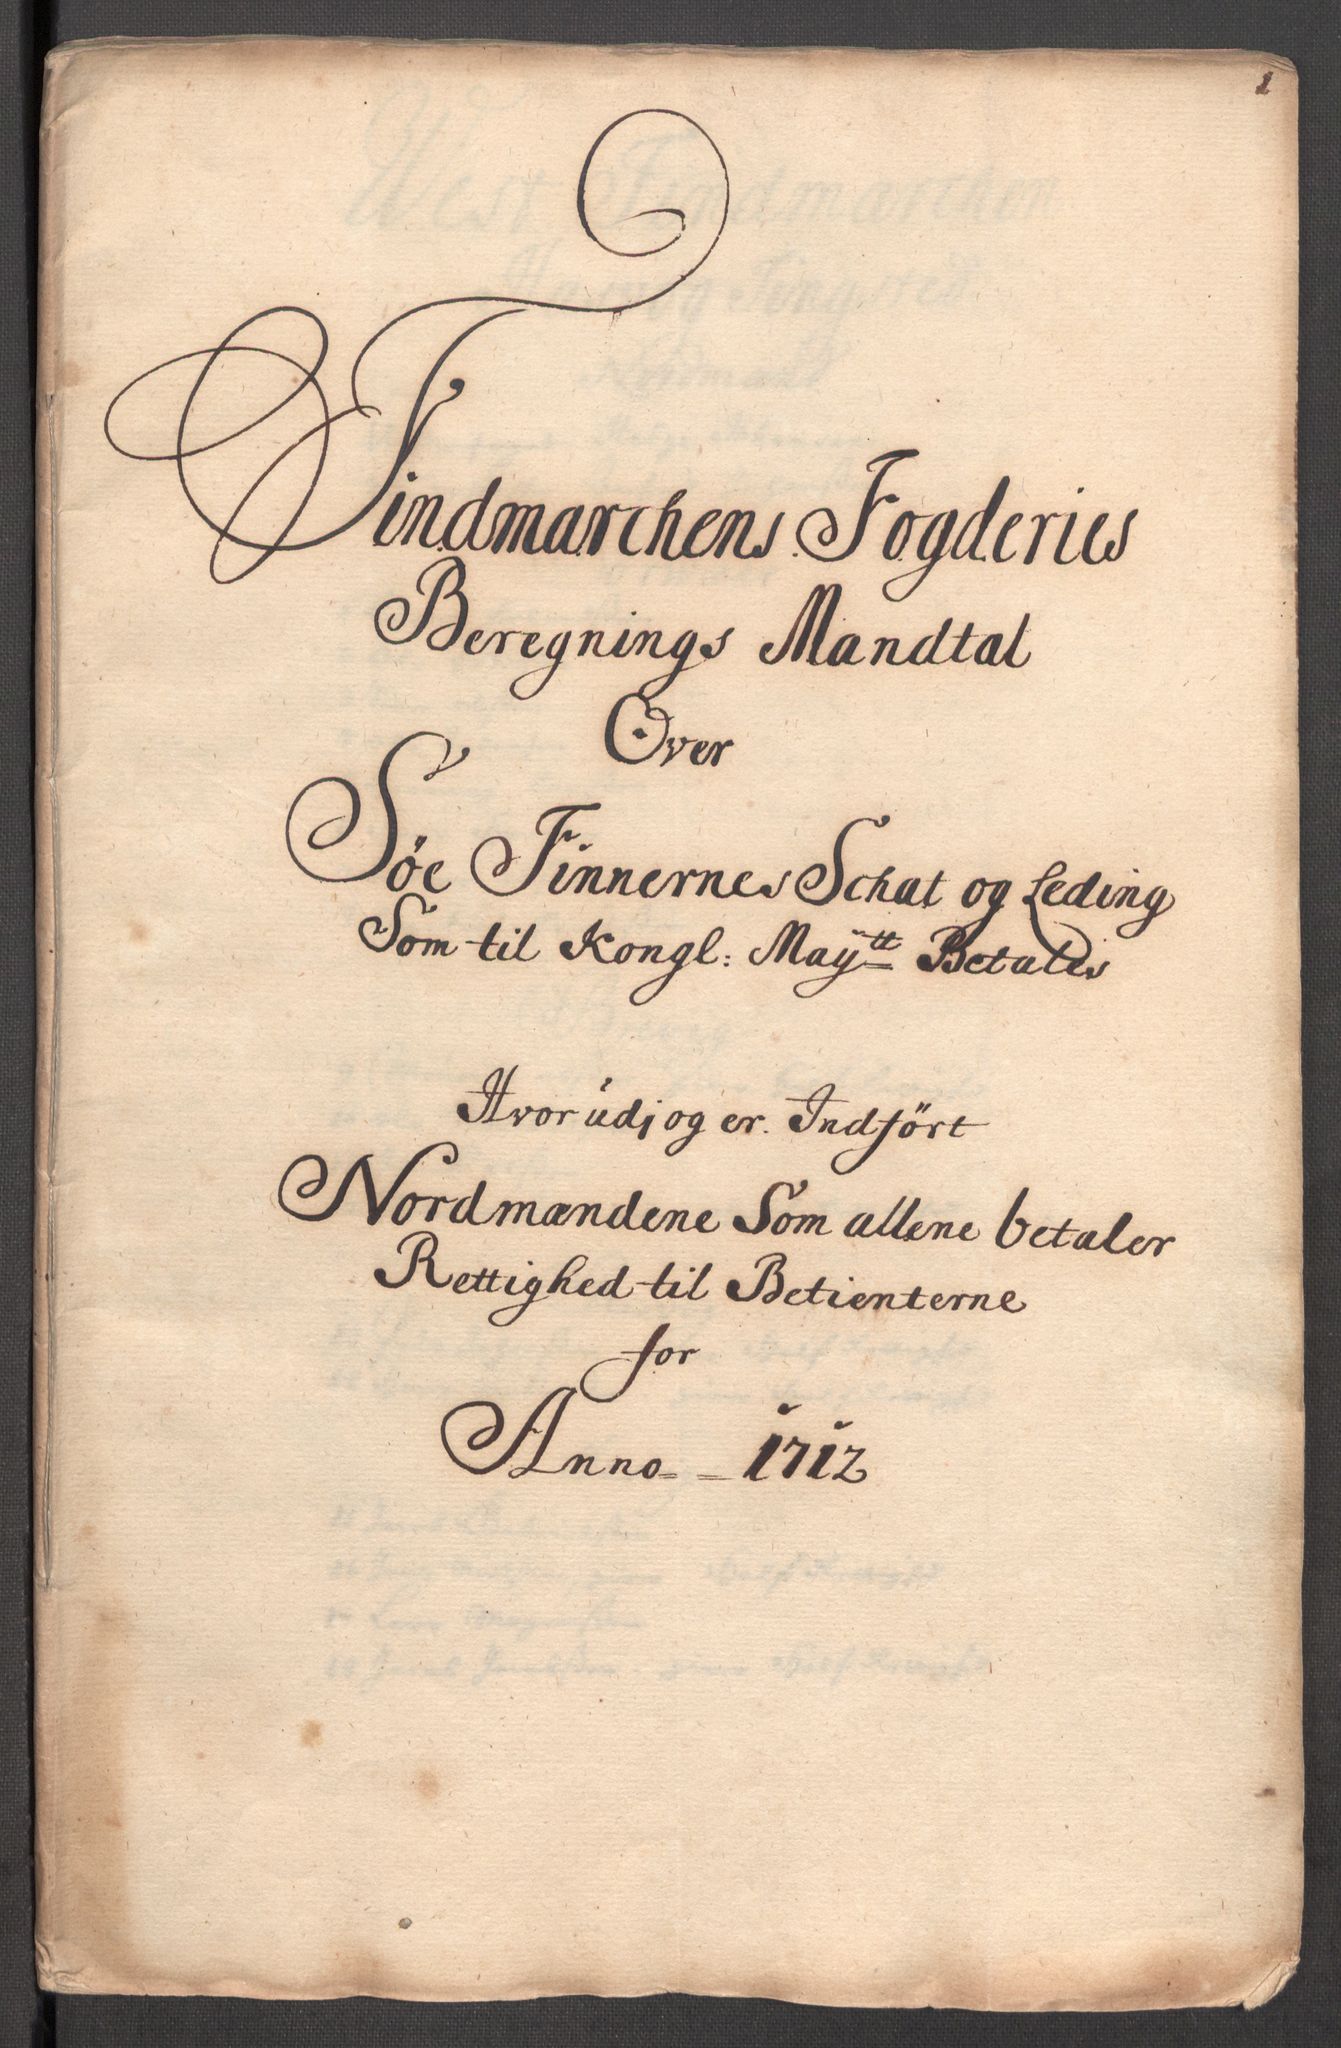 1
Findmarchens Fogderies
Beregnings Mandtal
Over
Søe Finnernes Schat og Leding
Som til Kongl: Maÿtt Betales
Hvorudj og er Indført
Nordmændene Som allene betaler
Rettighed til Betienterne
for
Anno 1712